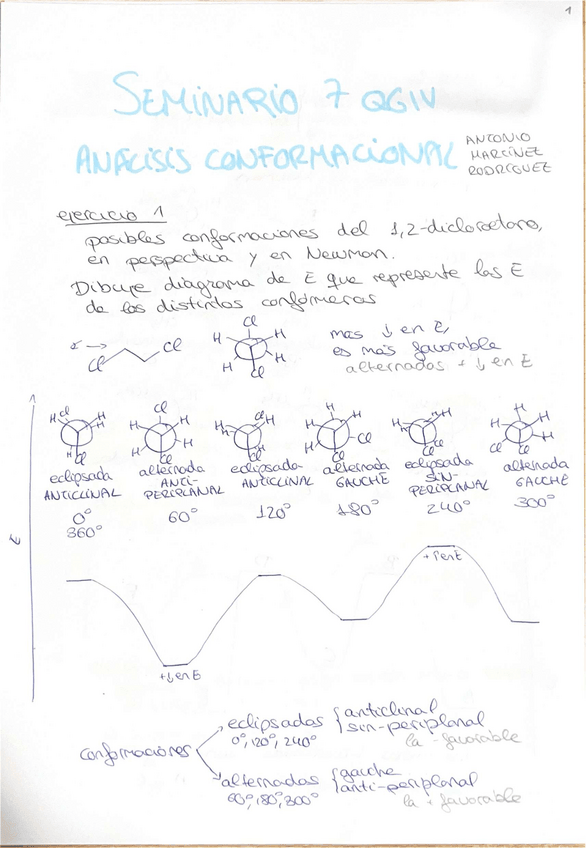 1
SEMINARIO 7 QGIV
ANÁLISIS CONFORMACIONAL
ANTONIO
MARTÍNEZ
RODRÍGUEZ
ejercicio 1
posibles conformaciones del 1,2-dicloroetano,
en perspectiva y en Newman.
Dibuje diagrama de E que represente las E
de los distintos confórmeros
Cl Cl
Cl H H H H Cl
mas ↓ en E,
es más favorable
alternados + ↓ en E
eclipsada
ANTICLINAL
0°
360°
alternada
ANTI-
PERIPLANAL
60°
eclipsada
ANTICLINAL
120°
alternada
GAUCHE
180°
eclipsada
SIN-
PERIPLANAL
240°
alternada
GAUCHE
300°
E
+↑ en E
+↓ en E
conformaciones
eclipsadas { anticlinal
0°, 120°, 240° sin-periplanal
la - favorable
alternadas { gauche
60°, 180°, 300° anti-periplanal
la + favorable